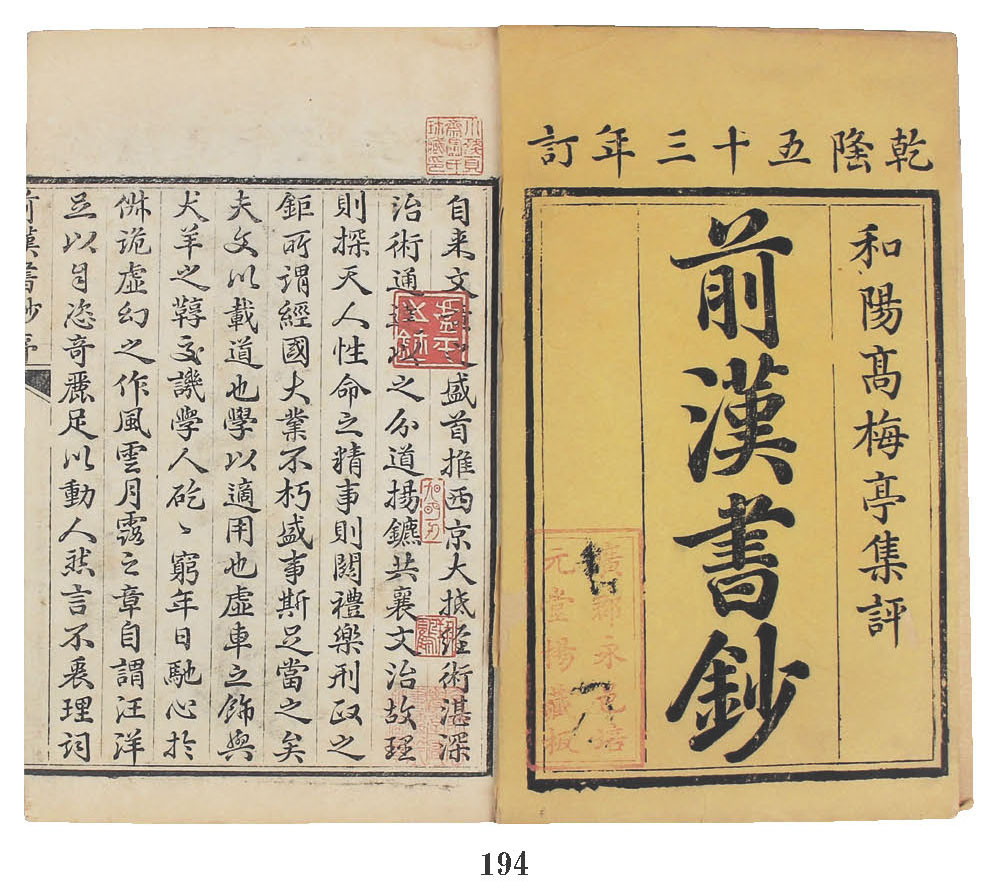 乾隆五十三年訂
和陽高梅亭集評
前漢書鈔
廣郡永邑培
元堂楊藏板
自来文之盛首推西京大抵經術湛深
治術通之分道揚鑣共襄文治故理
則探天人性命之精事則闢禮樂刑政之
鉅所謂經國大業不朽盛事斯足當之矣
夫文以載道也學以適用也虛車之飾與
犬羊之鞟交譏學人矻〻窮年日馳心於
俶詭虛幻之作風雲月露之章自謂汪洋
足以自恣奇麗足以動人然言不衷理詞
前漢書鈔序
194